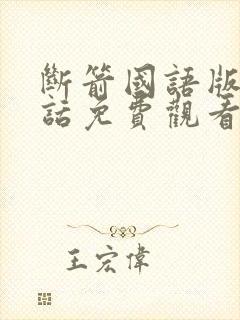 斷箭國語版
話免費觀看
王宏偉